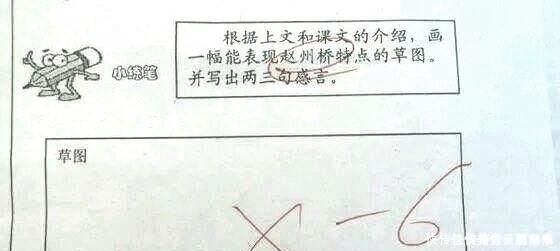 根据上文和课文的介绍，画
一幅能表现赵州桥特点的草图。
并写出两三句感言。
小练笔
草图
× -6